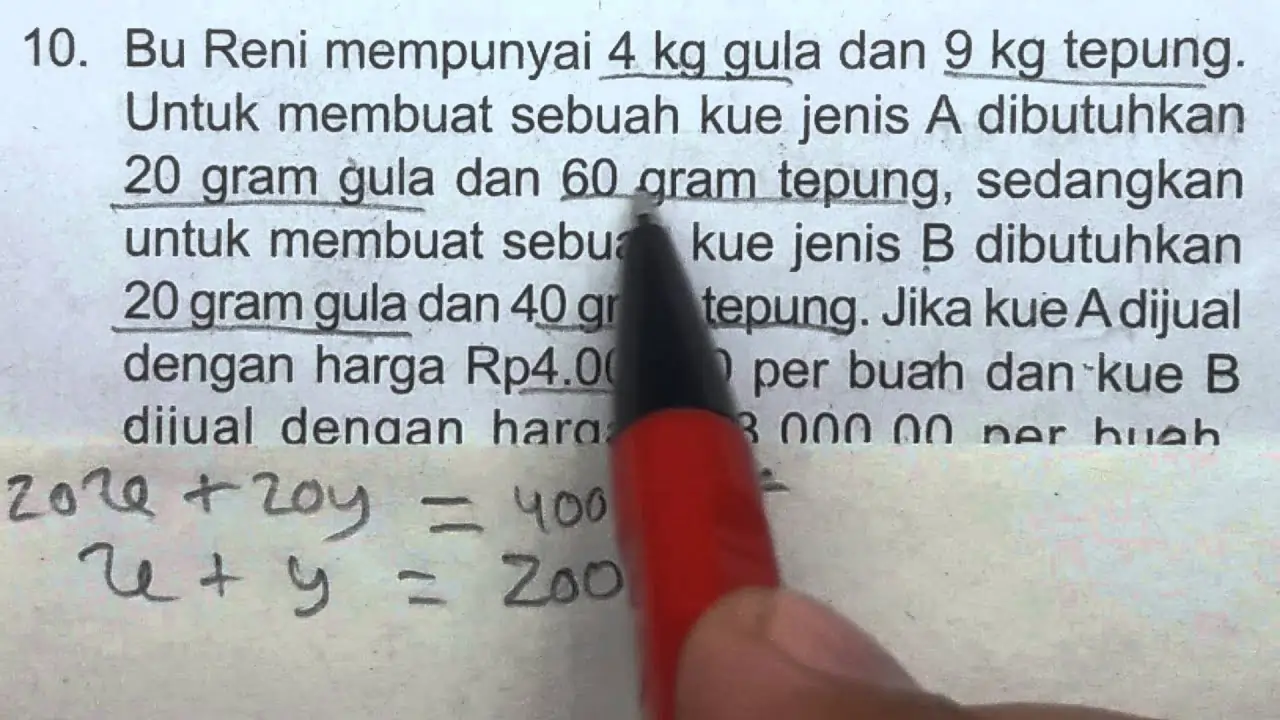 10. Bu Reni mempunyai 4 kg gula dan 9 kg tepung.
Untuk membuat sebuah kue jenis A dibutuhkan
20 gram gula dan 60 gram tepung, sedangkan
untuk membuat kue jenis B dibutuhkan
20 gram gula dan 40 tepung. Jika kue A dijual
dengan harga per buah dan kue B
dijual dengan 000,00 per buah
20x + 20y = 400
x + y = 200